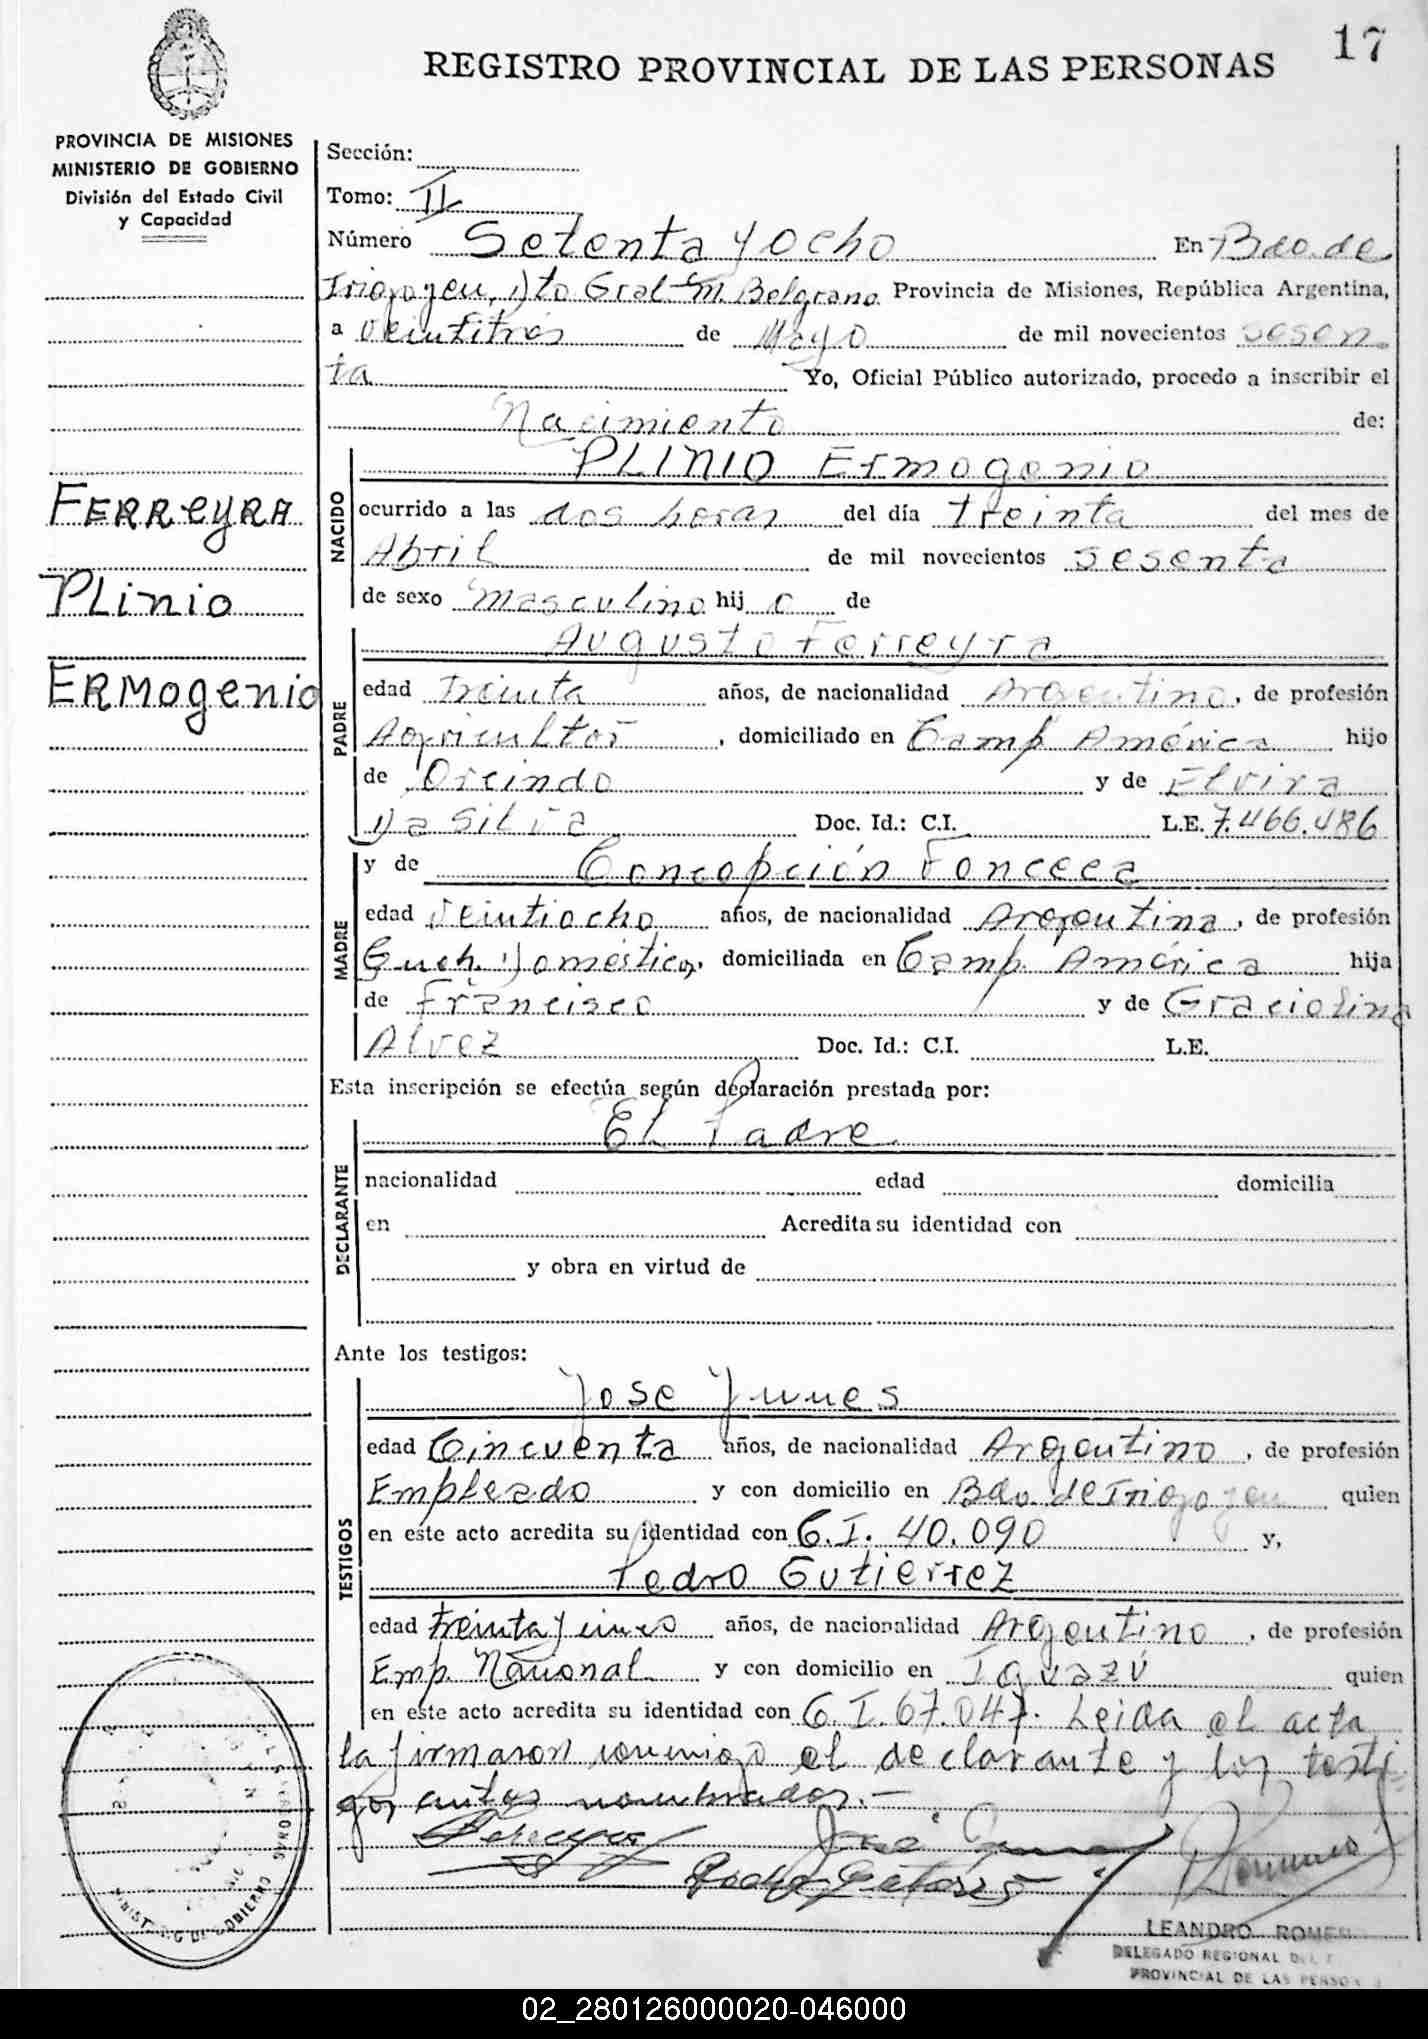 17
REGISTRO PROVINCIAL DE LAS PERSONAS
PROVINCIA DE MISIONES
MINISTERIO DE GOBIERNO
División del Estado Civil
y Capacidad
FERReyRA
PLinio
ERMogenio
Sección:
Tomo: II
Número Setenta y ocho En Bdo. de
Irigoyen, Dto Gral M. Belgrano Provincia de Misiones, República Argentina,
a veintitrés de Mayo de mil novecientos sesen
ta Yo, Oficial Público autorizado, procedo a inscribir el
Nacimiento de:
NACIDO
PLINIO Ermogenio
ocurrido a las dos horas del día treinta del mes de
Abril de mil novecientos sesenta
de sexo Masculino hij o de
PADRE
Augusto Ferreyra
edad treinta años, de nacionalidad Argentino, de profesión
Agricultor, domiciliado en Camp. América hijo
de Orcindo y de Elvira
Da Silva Doc. Id.: C.I. L.E. 7.466.486
y de Concepción Fonceca
MADRE
edad veintiocho años, de nacionalidad Argentina, de profesión
Queh. Domésticos, domiciliada en Camp. América hija
de Francisco y de Graciolina
Alvez Doc. Id.: C.I. L.E.
Esta inscripción se efectúa según declaración prestada por:
El Padre
DECLARANTE
nacionalidad edad domicilia
en Acredita su identidad con
y obra en virtud de
Ante los testigos:
TESTIGOS
José Yunes
edad Cincuenta años, de nacionalidad Argentino, de profesión
Empleado y con domicilio en Bdo. de Irigoyen quien
en este acto acredita su identidad con C.I. 40.090 y,
Pedro Gutierrez
edad treinta y cinco años, de nacionalidad Argentino, de profesión
Emp. Nacional y con domicilio en Iguazú quien
en este acto acredita su identidad con C.I. 67.047. Leida el acta
la firmaron conmigo el declarante y los testi
gos antes nombrados.-
LEANDRO ROMER
DELEGADO REGIONAL DEL
PROVINCIAL DE LAS PERSO
MINISTERIO DE GOBIERNO
02_280126000020-046000